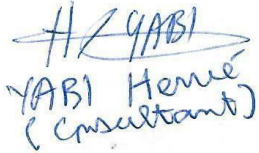 H YABI
YABI Hervé
(Consultant)